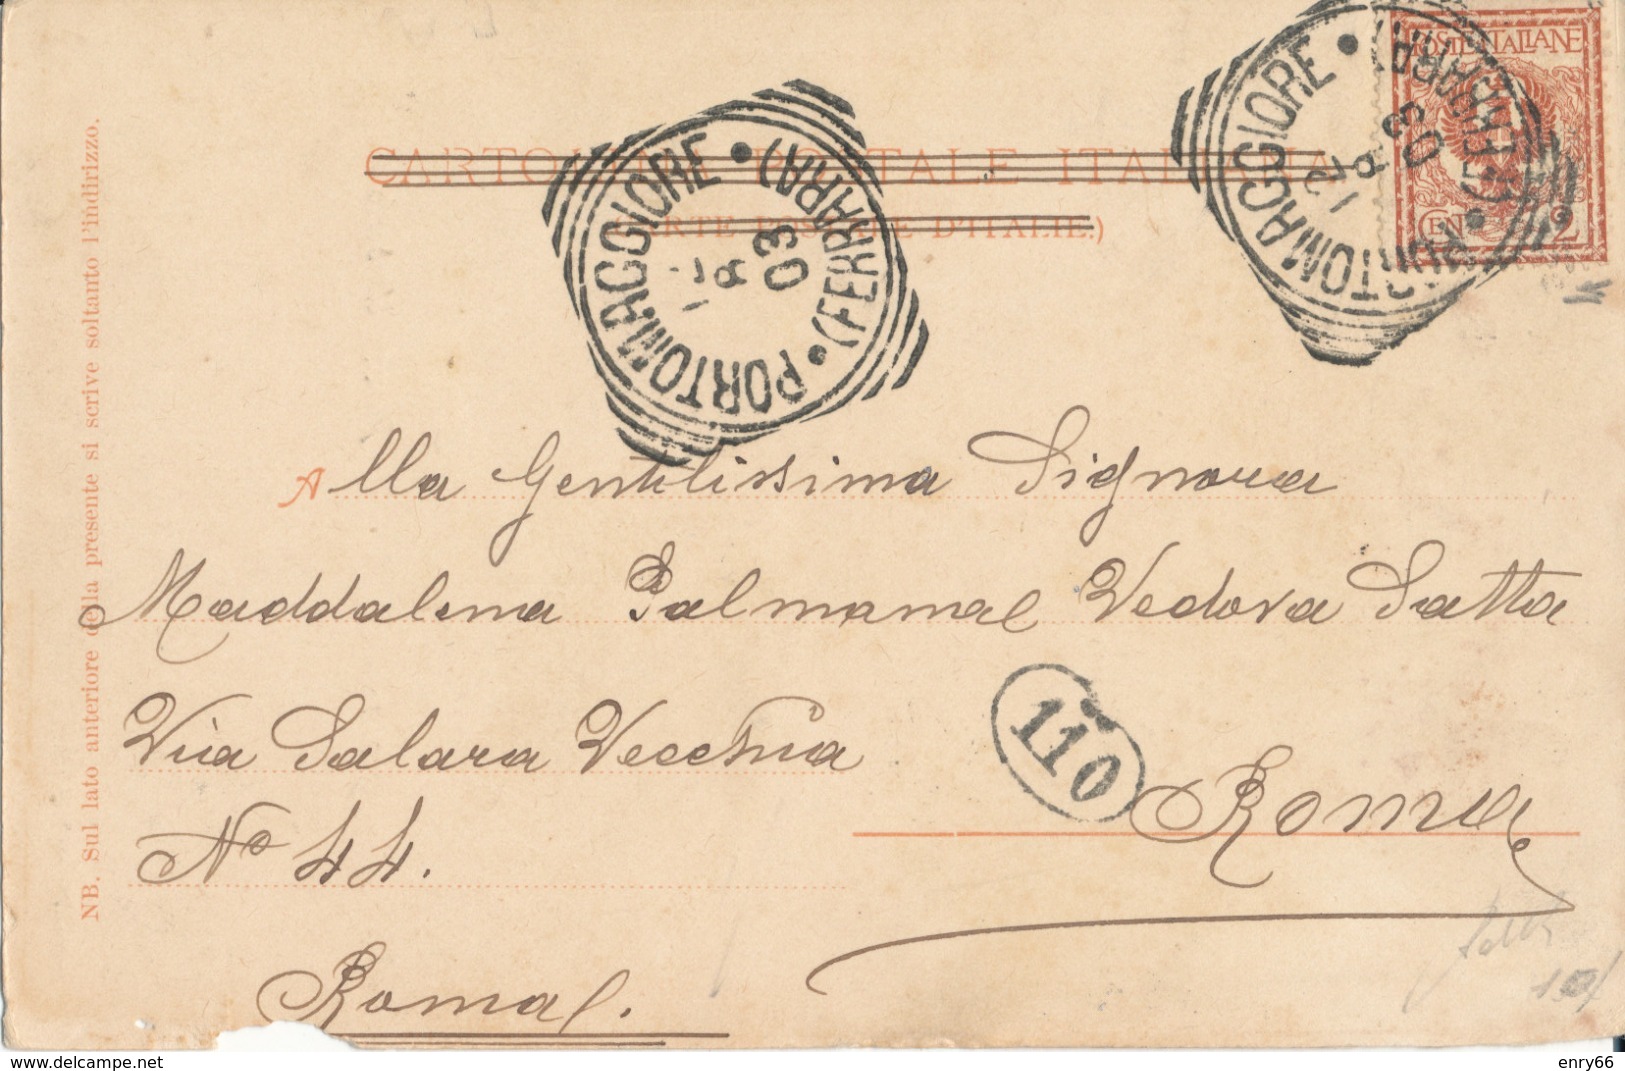 CARTOLINA POSTALE ITALIANA
(CARTE POSTALE D'ITALIE.)
POSTE ITALIANE
CENT
PORTOMAGGIORE
(FERRARA)
8
03
PORTOMAGGIORE
(FERRARA)
12
8
03
Alla Gentilissima Signora
Maddalena Palmamal Vedova Satta
Via Salara Vecchia
N° 44.
110
Roma
Roma.
NB. Sul lato anteriore della presente si scrive soltanto l'indirizzo.
delcampe.net
enry66